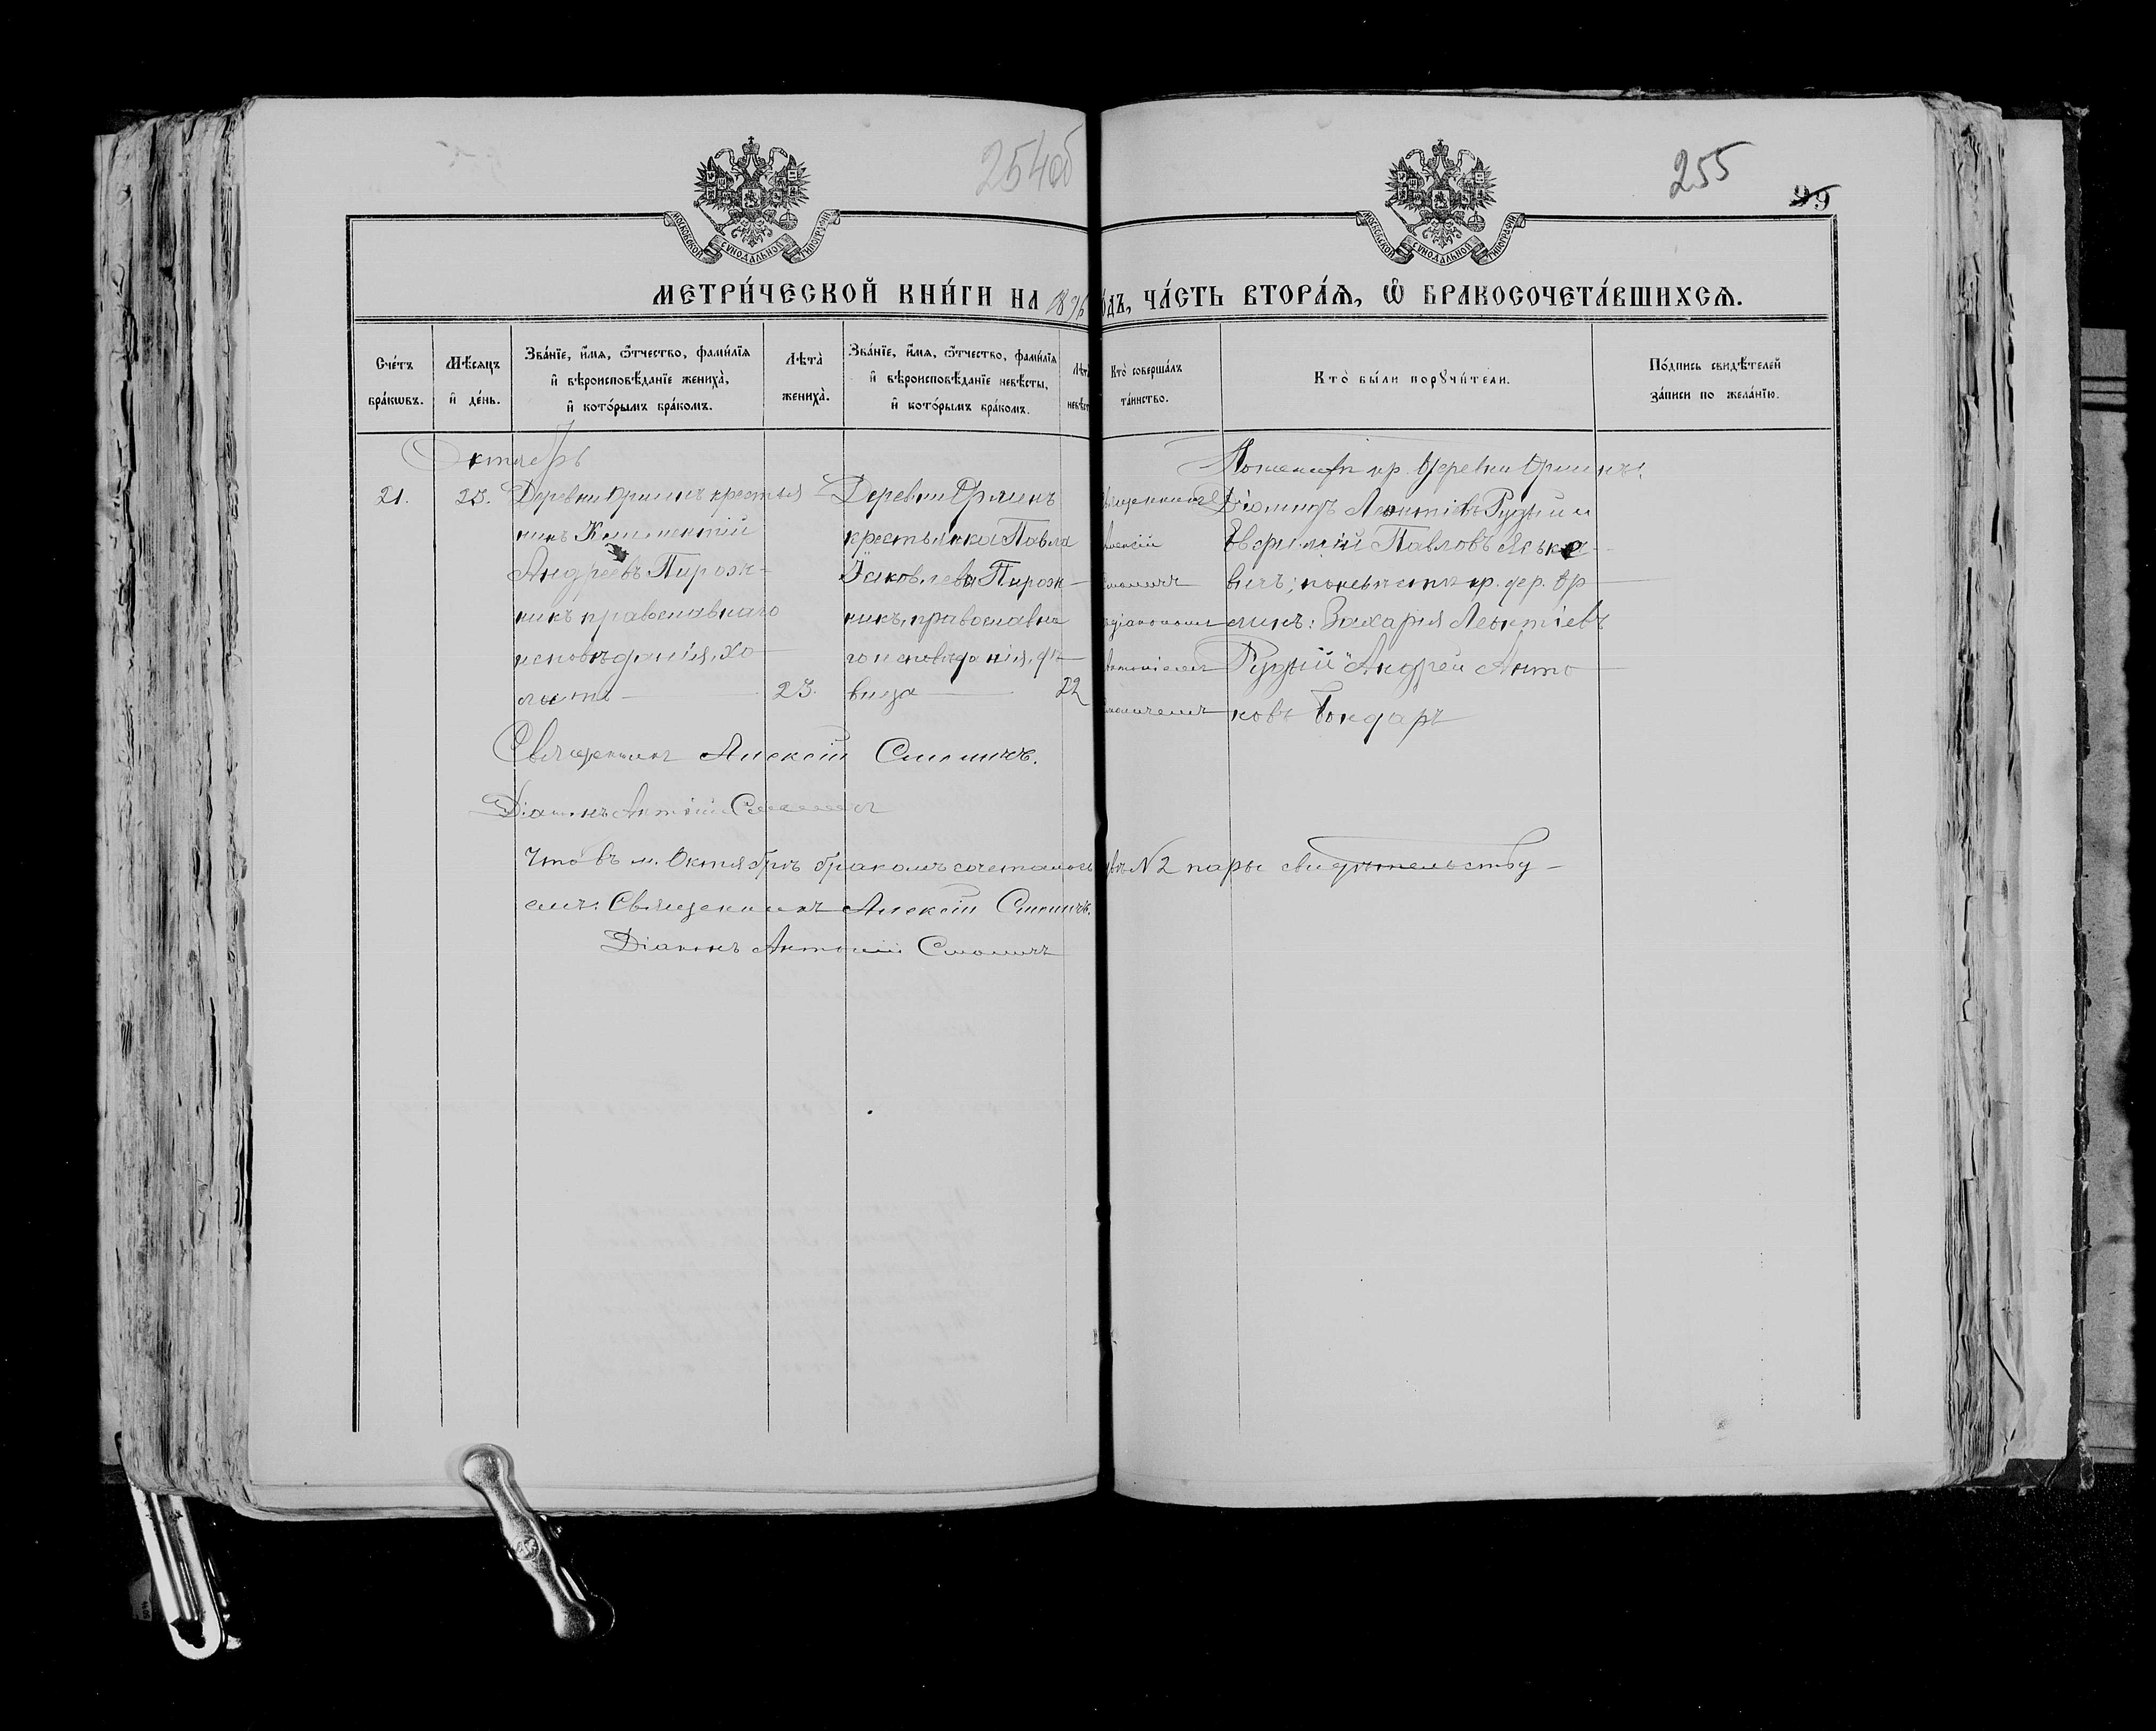 254об
255
99
МОСКОВСКОЙ СѴНОДАЛЬНОЙ ТИПОГРАФІИ
МОСКОВСКОЙ СѴНОДАЛЬНОЙ ТИПОГРАФІИ
МЕТРИ́ЧЕСКОЙ КНИ́ГИ НА 1896 ОДЪ, ЧА́СТЬ ВТОРА́Ѧ, Ѽ БРАКОСОЧЕТА́ВШИХСѦ.
Сче́тъ бра́кѡвъ.
Мѣ́сѧцъ и҆ де́нь.
Зва́нїе, и҆́мѧ, ѻ҆́тчество, фами́лїѧ и҆ вѣроисповѣ́данїе жениха̀, и҆ кото́рымъ бра́комъ.
Лѣта̀ жениха̀.
Зва́нїе, и҆́мѧ, ѻ҆́тчество, фами́лїѧ и҆ вѣроисповѣ́данїе невѣ́сты, и҆ кото́рымъ бра́комъ.
Лѣт невѣст
Кто̀ соверша́лъ та́инство.
Кто̀ бы́ли порꙋчи́тели.
По́дпись свидѣ́телей за́писи по жела́нїю.
Октябрь
21.
23.
Деревни крестья
нинъ Климентій
Андреевъ Пирож-
никъ православнаго
исповѣданія, хо-
лостъ
23.
Деревни
крестьянка Павла
Іаковлева Пирож-
никъ, православна
го исповѣданія, дѣ-
вица
22
Алексій
Смоличъ
Антоніемъ
По женихѣ кр. деревни
Діомидъ Леонтіевъ Рудый и
Евфимій Павловъ Яське-
вичъ; по невѣстѣ кр. дер. Ор-
линъ: Захарія Леонтіевъ
Рудый и Андрей Анто-
новъ Бондарь
Священникъ Алексій Смоличъ.
Діаконъ Антоній Смоличъ
Что въ м. Октябрѣ бракомъ сочеталось №2 пары свидѣтельству-
емъ: Священникъ Алексій Смоличъ.
Діаконъ Антоній Смоличъ